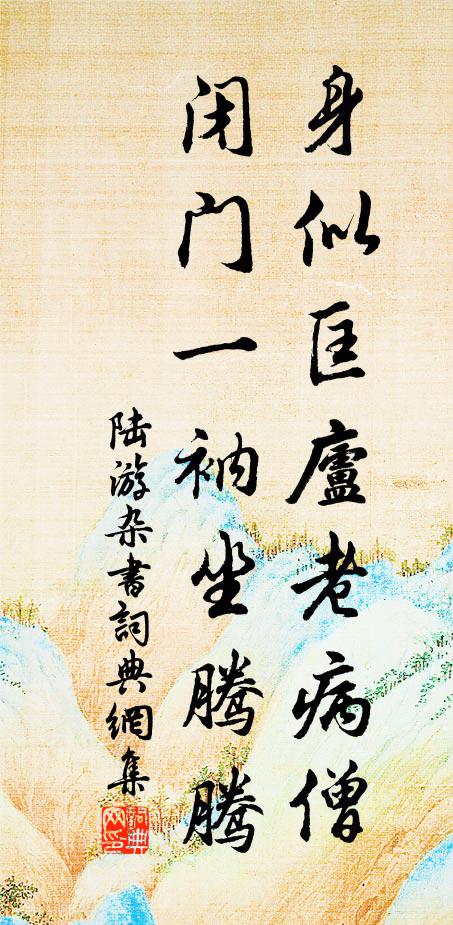 身似匡廬老病僧
闭门一衲坐腾腾
陆游杂书詞典網集
詞典
网印